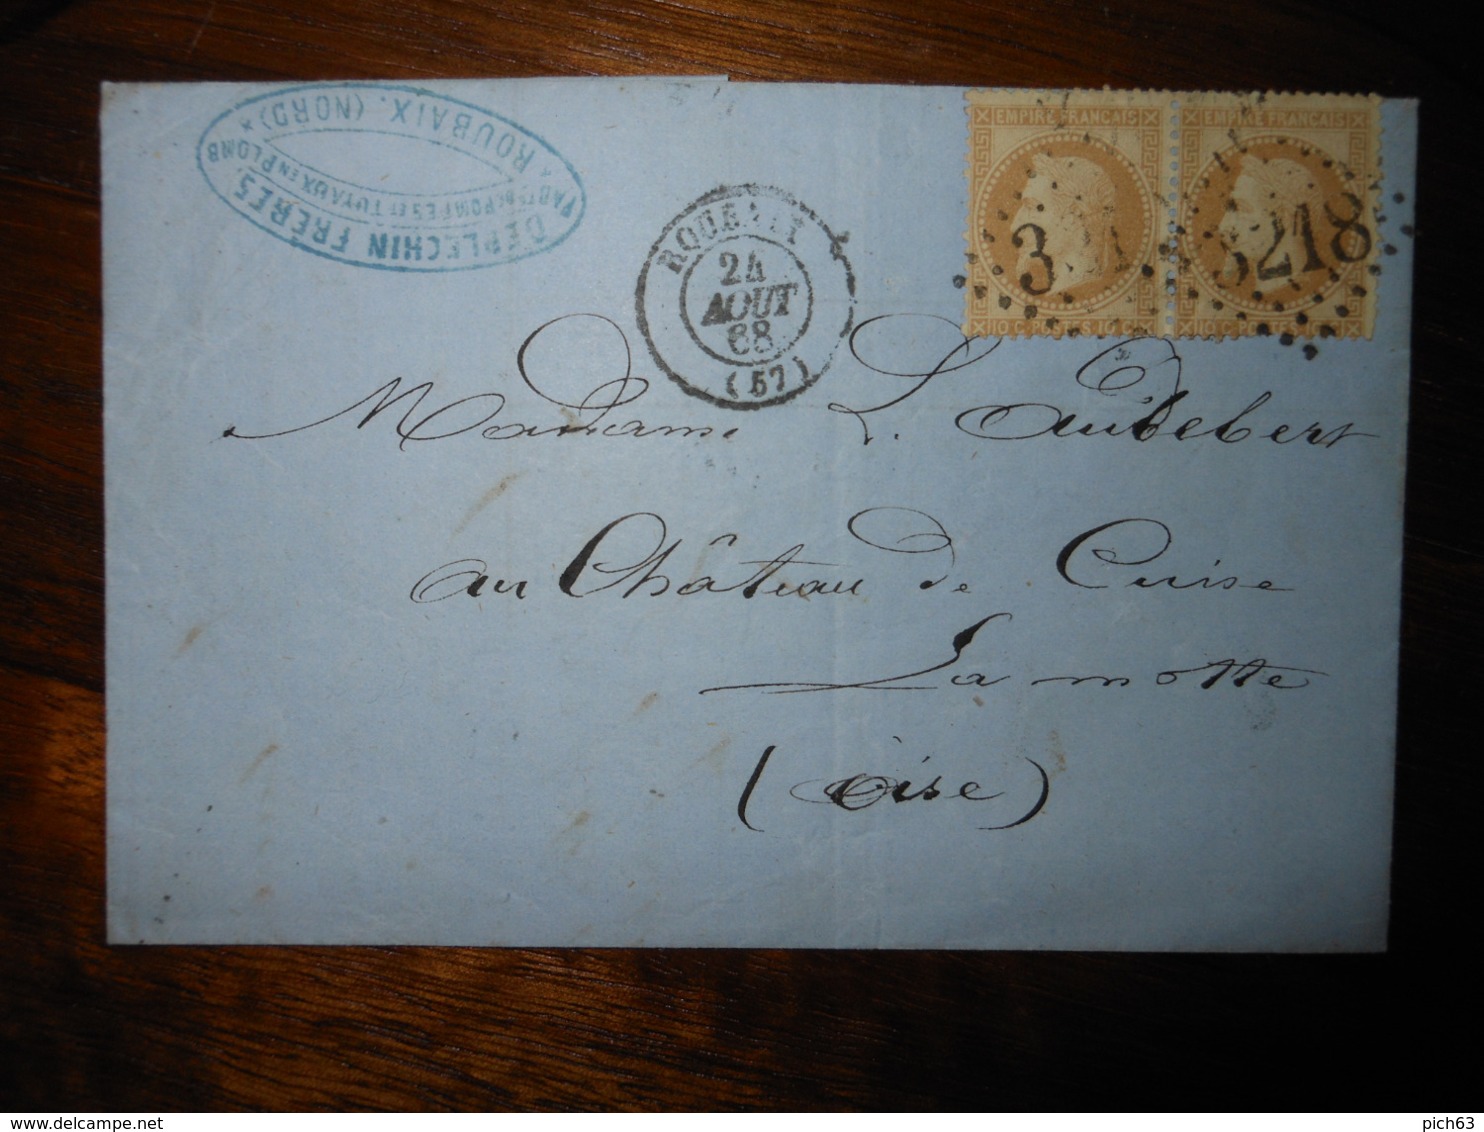 DEPLECHIN FRÈRES.
FABts DE POMPES ET TUYAUX EN PLOMB
* ROUBAIX. (NORD) *
24
AOUT
68
(57)
EMPIRE FRANÇAIS
10 C. POSTES 10 C.
EMPIRE FRANÇAIS
10 C. POSTES
3218
Madame L. Audebert
au Château de Cuise
La motte
(oise)
delcampe.net
pich63